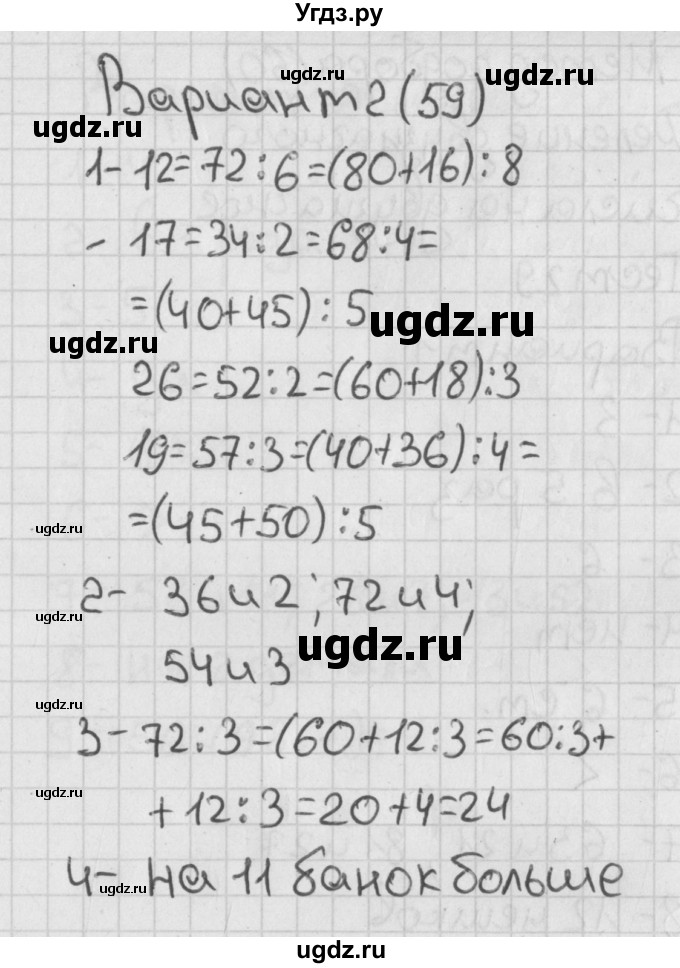 Угдз.ру
ugdz.ru ugdz.ru
Вариант 2 (59)
ugdz.ru
1- 12=72:6=(80+16):8
- 17=34:2=68:4=
=(40+45):5
ugdz.ru
ugdz.ru
26=52:2=(60+18):3
19=57:3=(40+36):4=
=(45+50):5
ugdz.ru
2- 36 и 2; 72 и 4;
ugdz.ru
54 и 3
ugdz.ru
ugdz.ru
3- 72:3=(60+12:3=60:3+
ugdz.ru
+12:3=20+4=24
4- на 11 банок больше
ugdz.ru
ugdz.ru